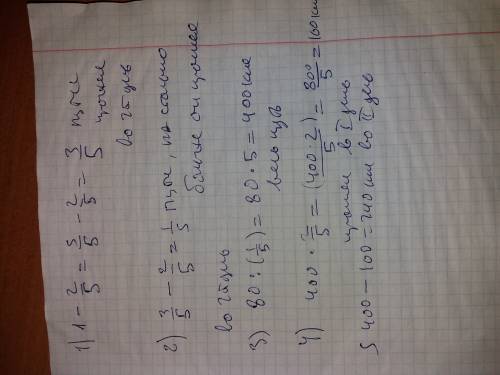 1) 1 - 2/5 = 5/5 - 2/5 = 3/5 пути
прошел
во II день
2) 3/5 - 2/5 = 1/5 пути, на столько
больше он прошел
во II день
3) 80 : (1/5) = 80 · 5 = 400 км
весь путь
4) 400 · 2/5 = (400·2)/5 = 800/5 = 160 км
прошел в I день
5 400 - 160 = 240 км во II день